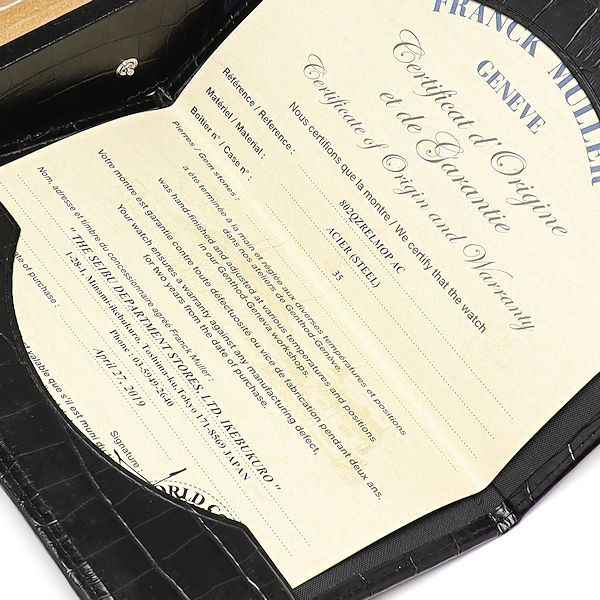 FRANCK MULLER
GENEVE
Certificat d'Origine
et de Garantie
Certificate of Origin and Warranty
Nous certifions que la montre / We certify that the watch
Référence / Reference : 802QZRELMOP AC
Matériel / Material : ACIER (STEEL)
Boîtier n° / Case n° : 35
Pierres / Gem stones :
a été terminée à la main et réglée aux diverses températures et positions
dans nos ateliers de Genthod-Genève.
was hand-finished and adjusted at various temperatures and positions
in our Genthod-Geneva workshops.
Votre montre est garantie contre toute défectuosité ou vice de fabrication pendant deux ans.
Your watch ensures a warranty against any manufacturing defect,
for two years from the date of purchase.
Nom, adresse et timbre du concessionnaire agréé Franck Muller :
" THE SEIBU DEPARTMENT STORES, LTD. IKEBUKURO "
1-28-1, Minamiikebukuro, Toshima-ku, Tokyo 171-8569 JAPAN
Phone : 03-5949-2640
ate of purchase :
April 27, 2019
valable que s'il est muni du
Signature
WORLD C